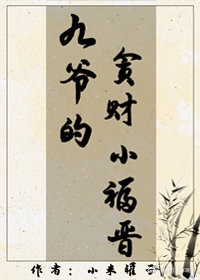 九爷的
贪财小福晋
作者：小米